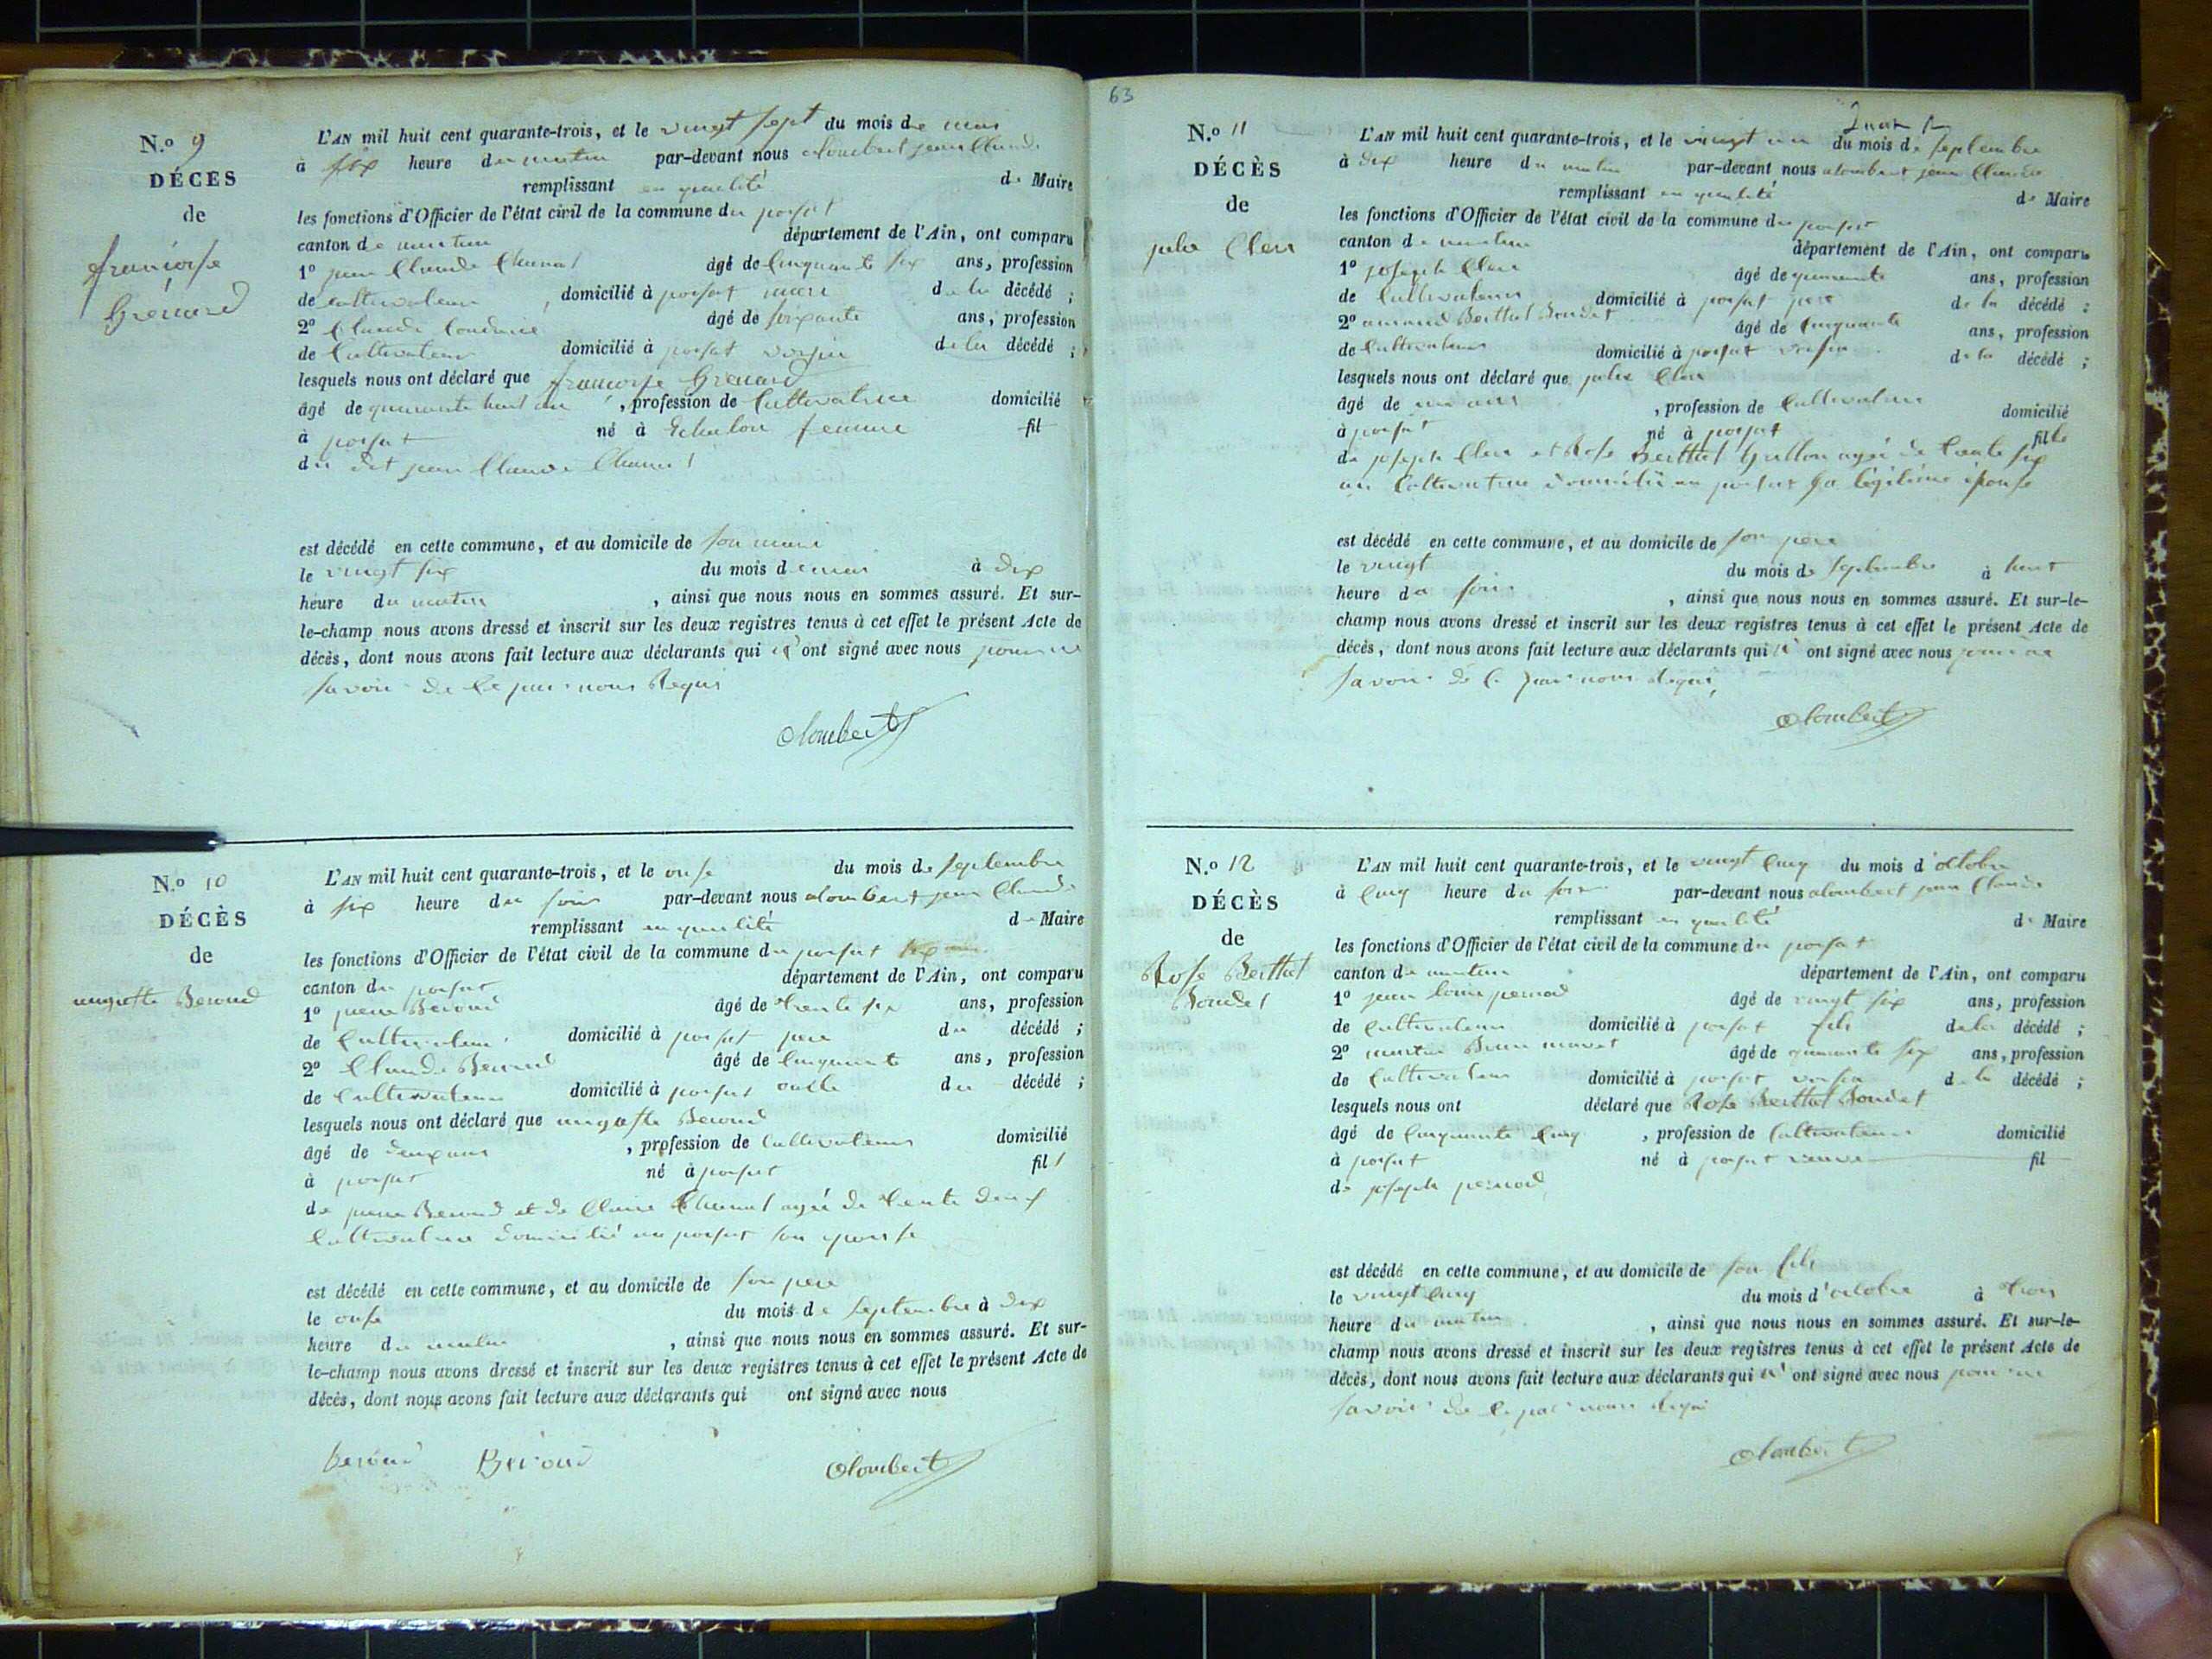 N.o 9
DÉCES
de
françoise
Grenard
L'AN mil huit cent quarante-trois, et le vingt sept du mois de mai
à six heure du matin par-devant nous alombert jean Claude
remplissant en qualité de Maire
les fonctions d'Officier de l'état civil de la commune du poisat
canton de nantua département de l'Ain, ont comparu
1º jean Claude Chanal âgé de Cinquante six ans, profession
de cultivateur, domicilié à poisat mari de la décédé ;
2º Claude âgé de soixante ans, profession
de Cultivateur domicilié à poisat voisin de la décédé ;
lesquels nous ont déclaré que françoise Grenard
âgé de quarante huit an, profession de Cultivatrice domicilié
à poisat né à Echalon femme fil
du dit jean Claude Chanal
est décédé en cette commune, et au domicile de son mari
le vingt six du mois de mai à dix
heure du matin, ainsi que nous nous en sommes assuré. Et sur-
le-champ nous avons dressé et inscrit sur les deux registres tenus à cet effet le présent Acte de
décès, dont nous avons fait lecture aux déclarants qui n'ont signé avec nous pour ne
savoir de ce par nous Requis
Alombert
N.o 10
DÉCÈS
de
augustte Beroud
L'AN mil huit cent quarante-trois, et le onse du mois de septembre
à six heure du soir par-devant nous alombert jean Claude
remplissant en qualité de Maire
les fonctions d'Officier de l'état civil de la commune du poisat
canton du poisat département de l'Ain, ont comparu
1º Beroud âgé de trente six ans, profession
de Cultivateur domicilié à poisat pere du décédé ;
2º Claude Beroud âgé de Cinquante ans, profession
de Cultivateur domicilié à poisat oncle du décédé ;
lesquels nous ont déclaré que Beroud
âgé de deux ans, profession de Cultivateur domicilié
à poisat né à poisat fils
de Beroud et de Claire Chanal agée de trente deux
Cultivatrice domicilié au poisat son epouse
est décédé en cette commune, et au domicile de son pere
le onse du mois de septembre à dix
heure du matin, ainsi que nous nous en sommes assuré. Et sur-
le-champ nous avons dressé et inscrit sur les deux registres tenus à cet effet le présent Acte de
décès, dont nous avons fait lecture aux déclarants qui ont signé avec nous
Beroud Beroud Alombert
63
N.o 11
DÉCÈS
de
julie Clerc
L'AN mil huit cent quarante-trois, et le vingt un du mois de septembre
à dix heure du matin par-devant nous alombert jean Claude
remplissant en qualité de Maire
les fonctions d'Officier de l'état civil de la commune du poisat
canton de nantua département de l'Ain, ont comparu
1º joseph Clerc âgé de quarante ans, profession
de Cultivateur domicilié à poisat pere de la décédé ;
2º armand Berthet Bondet âgé de Cinquante ans, profession
de Cultivateur domicilié à poisat voisin de la décédé ;
lesquels nous ont déclaré que julie Clerc
âgé de un ans, profession de Cultivateur domicilié
à poisat né à poisat fille
de joseph Clerc et Rose Berthet Grillon agée de trente six
an Cultivatrice domicilié au poisat sa légitime épouse
est décédé en cette commune, et au domicile de son pere
le vingt du mois de septembre à huit
heure du soir, ainsi que nous nous en sommes assuré. Et sur-le-
champ nous avons dressé et inscrit sur les deux registres tenus à cet effet le présent Acte de
décès, dont nous avons fait lecture aux déclarants qui n' ont signé avec nous pour ne
savoir de ce par nous Requis
Alombert
N.o 12
DÉCÈS
de
Rose Berthet
Bondet
L'AN mil huit cent quarante-trois, et le vingt Cinq du mois d'octobre
à Cinq heure du soir par-devant nous alombert jean Claude
remplissant en qualité de Maire
les fonctions d'Officier de l'état civil de la commune du poisat
canton de nantua département de l'Ain, ont comparu
1º jean louis perrod âgé de vingt six ans, profession
de Cultivateur domicilié à poisat fils de la décédé ;
2º Brun âgé de quarante six ans, profession
de Cultivateur domicilié à poisat voisin de la décédé ;
lesquels nous ont déclaré que Rose Berthet Bondet
âgé de Cinquante Cinq, profession de Cultivateur domicilié
à poisat né à poisat veuve fil
de joseph perrod
est décédé en cette commune, et au domicile de son fils
le vingt Cinq du mois d'octobre à trois
heure du matin, ainsi que nous nous en sommes assuré. Et sur-le-
champ nous avons dressé et inscrit sur les deux registres tenus à cet effet le présent Acte de
décès, dont nous avons fait lecture aux déclarants qui n' ont signé avec nous pour ne
savoir de ce par nous Requis
Alombert